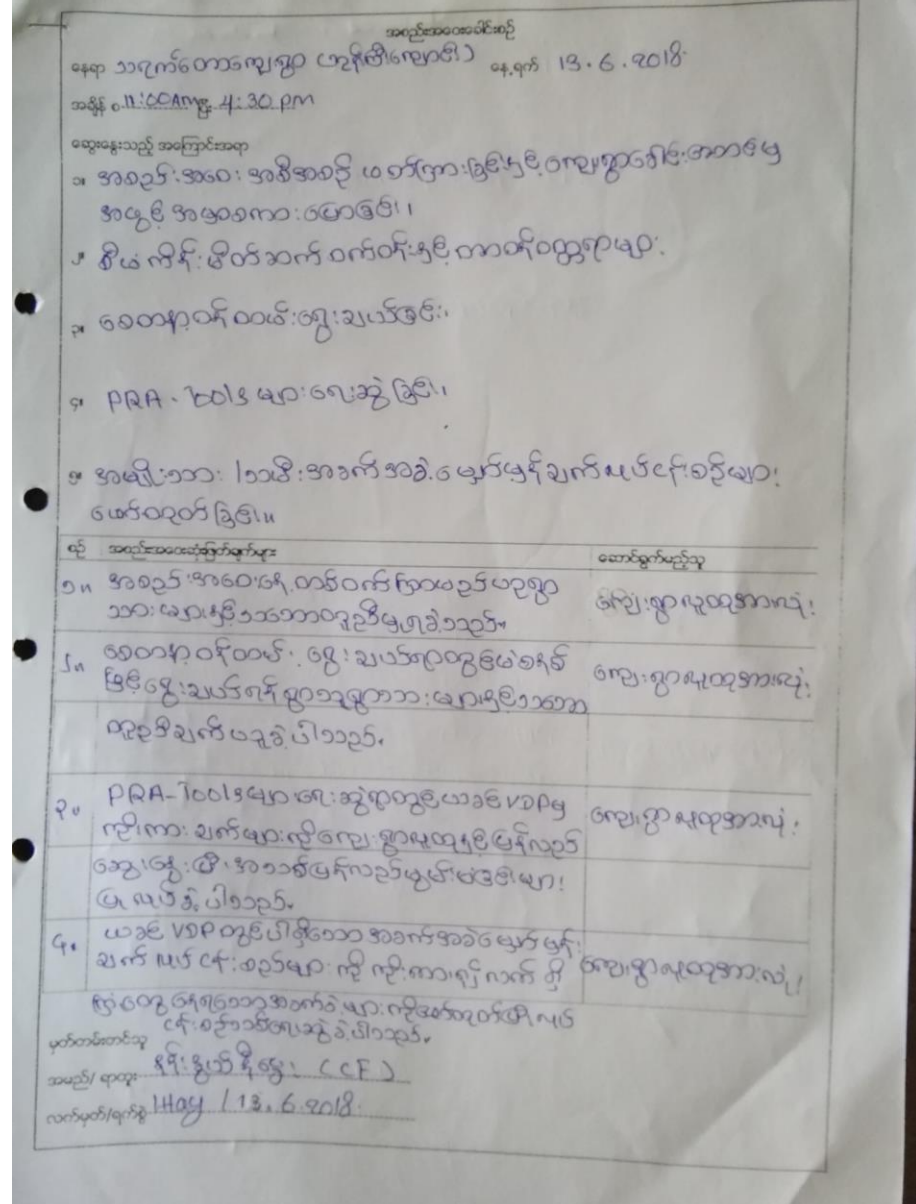 အစည်းအဝေးခေါင်းစဉ်
နေရာ သရက်တောကျေးရွာ (ဘုန်းကြီးကျောင်း) နေ့ရက် 13.6.2018
အချိန် 11:00AM မှ 4:30 PM
ဆွေးနွေးသည့် အကြောင်းအရာ
၁။ အစည်းအဝေး အစီအစဉ် ဖတ်ကြားခြင်းနှင့် ကျေးရွာခေါင်းဆောင်မှ
အဖွင့် အမှာစကားပြောခြင်း၊
၂။ စီမံကိန်း မိတ်ဆက် ဝက်ဝန်းနှင့် တာဝန်ဝတ္တရားများ
၃။ စေတနာ့ဝန်ထမ်းရွေးချယ်ခြင်း၊
၄။ PRA-Tools များရေးဆွဲခြင်း၊
၅။ အမျိုးသား/သမီး အခက်အခဲ မျှော်မှန်းချက် လုပ်ငန်းစဉ်များ
ဖော်ထုတ်ခြင်း။
စဉ် အစည်းအဝေးဆုံးဖြတ်ချက်များ ဆောင်ရွက်မည့်သူ
၁။ အစည်းအဝေးနေ့ တစ်ဝက်ကြာမည် ရွာ
သားများနှင့် သဘောတူညီမှုယူခဲ့သည်။ ကျေးရွာလူထုအားလုံး
၂။ စေတနာ့ဝန်ထမ်း ရွေးချယ်ရာတွင် မဲစနစ် ကျေးရွာလူထုအားလုံး
ဖြင့် ရွေးချယ်ရန် ရွာသူရွာသားများနှင့် သဘော
တူညီချက်ယူခဲ့ပါသည်။
၃။ PRA-Tools များရေးဆွဲရာတွင် ယခင် VDP မှ ကျေးရွာလူထုအားလုံး
ကိုးကားချက်များကို ကျေးရွာလူထုနှင့် ပြန်လည်
ဆွေးနွေးပြီး အသစ်ပြန်လည် မွမ်းမံခြင်းများ
ပြုလုပ်ခဲ့ပါသည်။
၄။ ယခင် VDP တွင်ပါရှိသော အခက်အခဲ မျှော်မှန်း
ချက် လုပ်ငန်းစဉ်များကို ကိုးကား၍ လက်ရှိ ကျေးရွာလူထုအားလုံး
ကြုံတွေ့နေရသော အခက်ခဲများကို ဖော်ထုတ်ပြီး လုပ်
ငန်းစဉ်သစ်ရေးဆွဲခဲ့ပါသည်။
မှတ်တမ်းတင်သူ
အမည်/ ရာထူး (CF)
လက်မှတ်/ရက်စွဲ / 13.6.2018